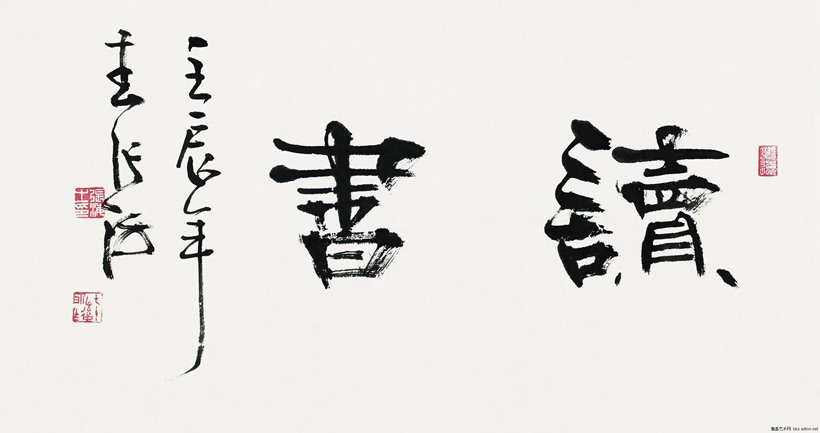 讀書
壬辰年
春張海
雅昌艺术网 bbs.artron.net